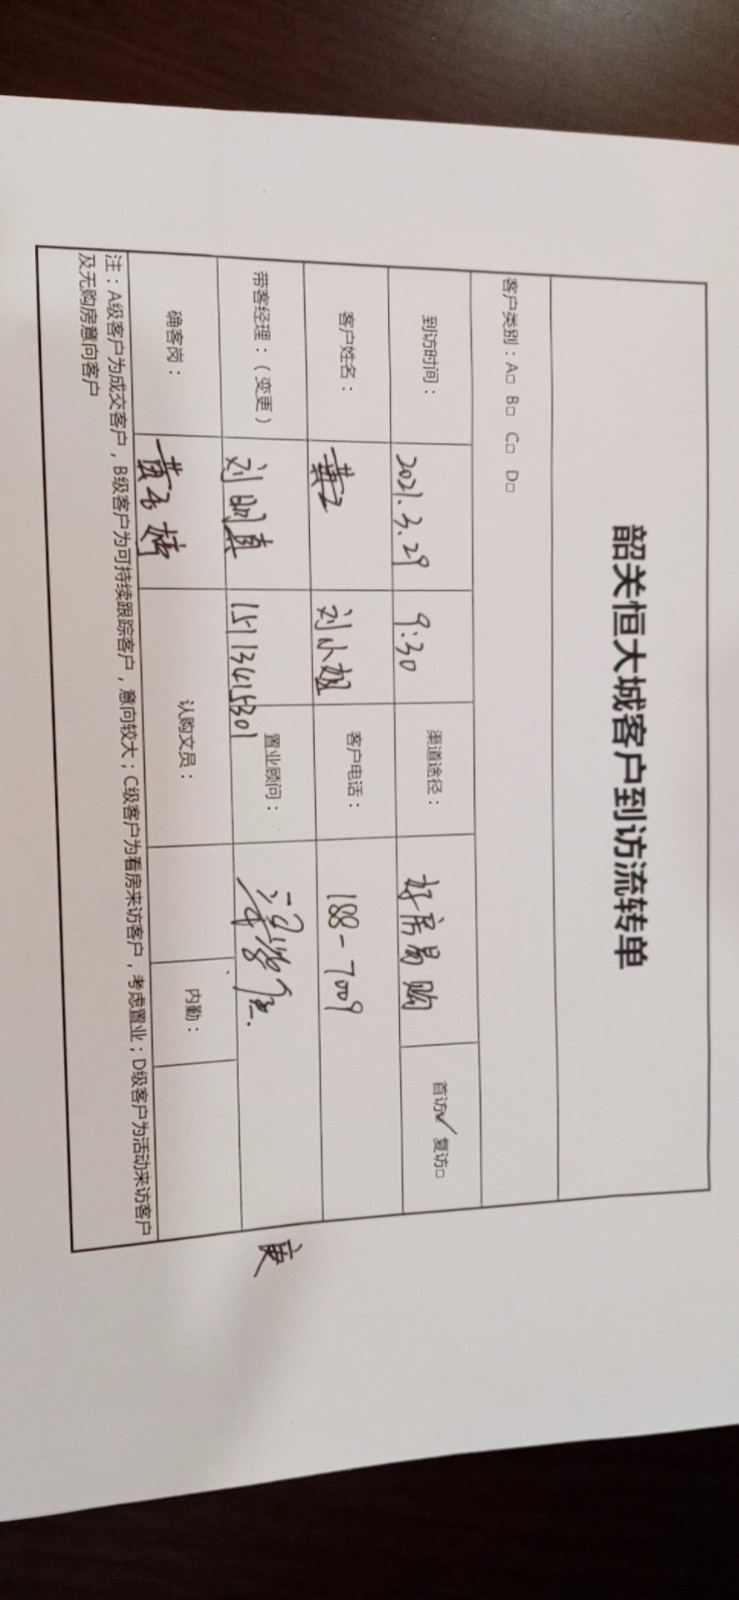 韶关恒大城客户到访流转单
客户类别：A□ B□ C□ D□
到访时间： 2021.3.29 9:30 渠道途径： 好居易购 首访✓ 复访□
客户姓名： 刘小姐 客户电话： 188-7009
带客经理：（变更） 刘明真 15113415301 置业顾问：
确客岗： 认购文员： 内勤：
注：A级客户为成交客户，B级客户为可持续跟踪客户，意向较大；C级客户为看房来访客户，考虑置业；D级客户为活动来访客户
及无购房意向客户